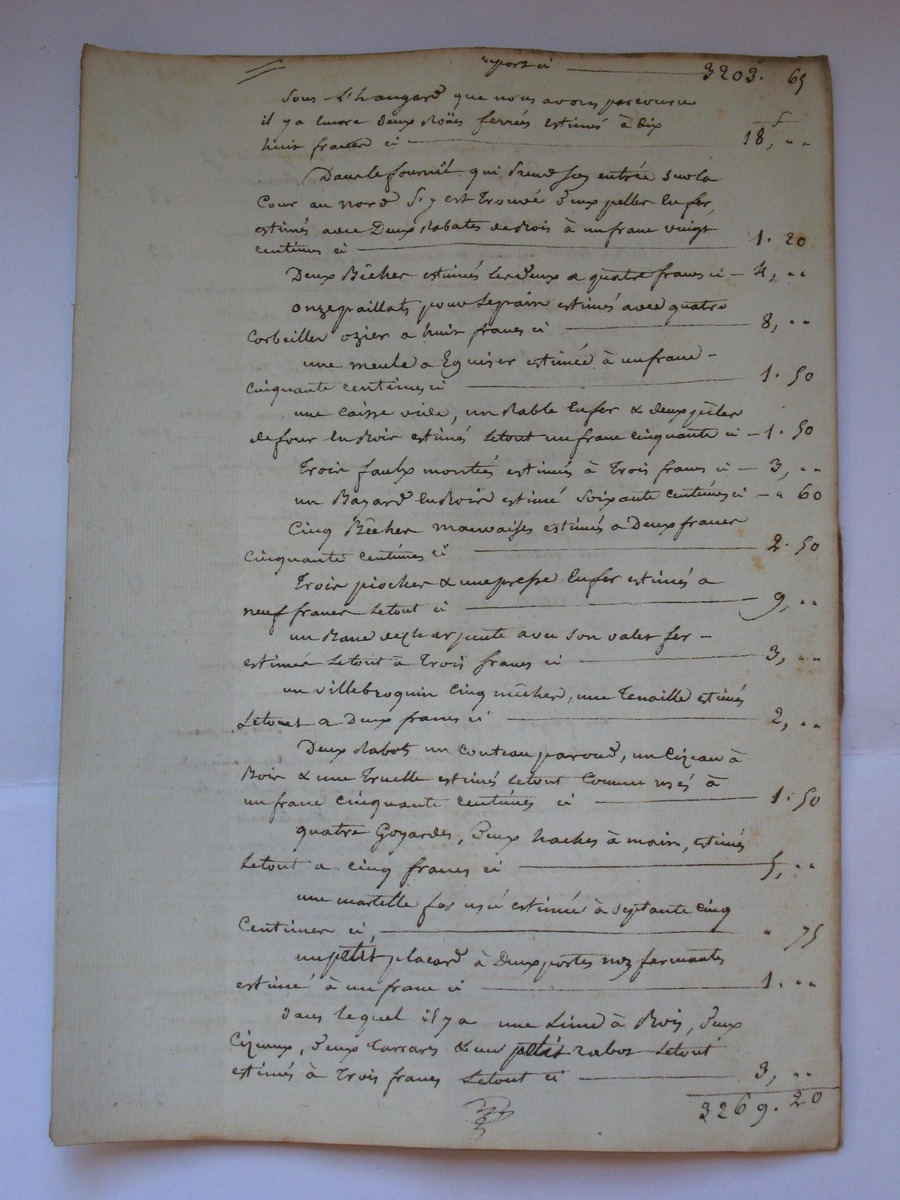 report ci 3203. 65
Sous L'hangard que nous avons parcouru
il y a encore deux Roües ferrées estimés à dix
huit francs ci 18, "
Dans le fournil qui prend son entrée sur la
Cour au nord S'y est Trouvé deux pelles En fer,
estimés avec Deux Rabales de Bois à un franc vingt
centimes ci 1. 20
Deux Bêches estimés les deux a quatre francs ci 4, "
onze paillats pour Le pain estimés avec quatre
Corbeilles ozier a huit francs ci 8, "
une meule a Eguiser estimée à un franc
Cinquante centimes ci 1. 50
une Caisse vide, un Rable En fer & deux pèles
de four En Bois estimés Le tout un franc cinquante ci 1. 50
Trois faulx montées estimés à Trois francs ci 3, "
un Bayard En Bois estimé soixante centimes ci " 60
Cinq Bêches mauvaises estimés a Deux francs
Cinquante Centimes ci 2. 50
Trois pioches & une presse En fer estimés a
neuf francs Le tout ci 9, "
un Banc de charpente avec son valet fer
estimés Le tout à Trois francs ci 3, "
un villebroquin cinq mêches, une Tenaille estimés
Le tout a Deux francs ci 2, "
Deux Rabots un Couteau paroud, un Cizeau à
Bois & une Truelle estimés Le tout Comme usés à
un franc cinquante centimes ci 1. 50
quatre Goyardes, deux haches à main, estimés
Le tout a cinq francs ci 5, "
une martelle fer usé estimée à septante cinq
Centimes ci " 75
un petit placard à Deux portes noz fermantes
estimé à un franc ci 1. "
dans lequel il y a une Lime à Bois, deux
Cizeaux, deux Tarrares & un petit rabot Le tout
estimés à Trois francs Le tout ci 3, "
3269. 20